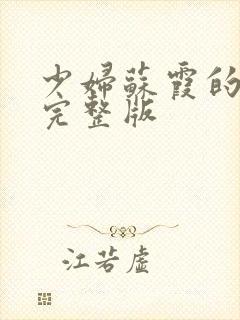 少婦蘇霞的
完整版
江若虛